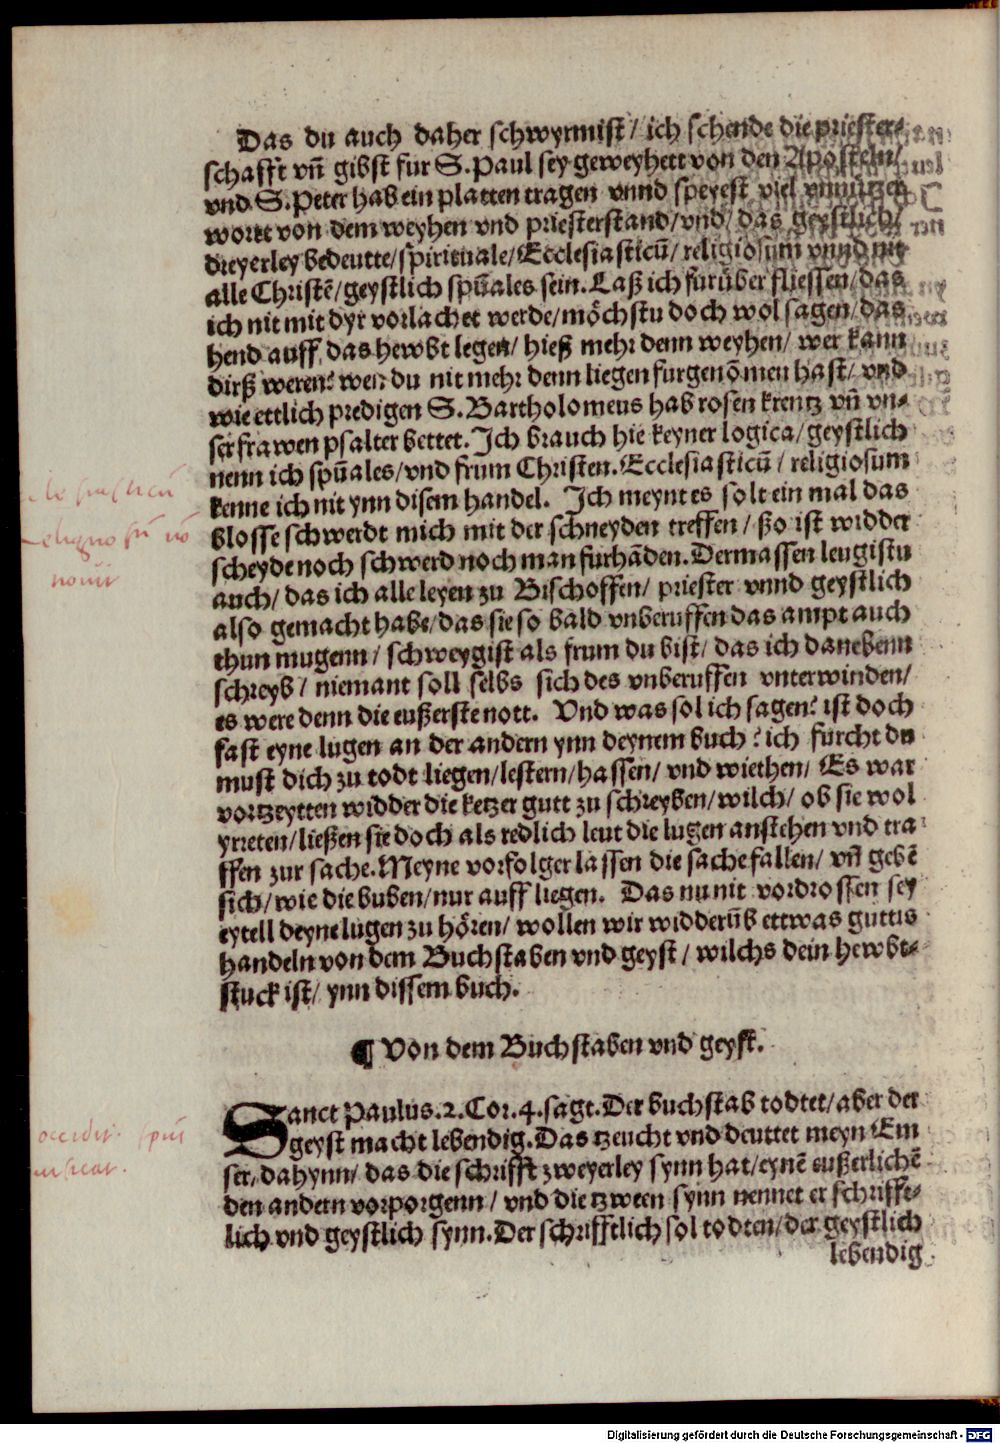 Das du auch daher schwyrmist/ ich schende die priester-
schafft vñ gibst fur S. Paul sey geweyhett von den Aposteln/
vnd S. Peter hab ein platten tragen vnnd speyest viel vnnützen
wortt von dem weyhen vnd priesterstand/ vnd/ das geystlich/
dreyerley bedeutte/ spirituale/ Ecclesiasticũ/ religiosum vnnd nit
alle Christẽ/ geystlich spũales sein. Laß ich furüber fliessen/ das
ich nit mit dyr vorlachet werde/ möchstu doch wol sagen/ das
hend auff das hewbt legen/ hieß mehr denn weyhen/ wer kann
dirß weren? wen du nit mehr denn liegen furgenõmen hast/ vnd
wie ettlich predigen S. Bartholomeus hab rosen krentz vñ vn-
ser frawen psalter bettet. Ich brauch hie keyner logica/ geystlich
nenn ich spũales/ vnd frum Christen. Ecclesiasticũ/ religiosum
kenne ich nit ynn disem handel. Ich meynt es solt ein mal das
blosse schwerdt mich mit der schneyden treffen/ ßo ist widder
scheyde noch schwerd noch man furhãden. Dermassen leugistu
auch/ das ich alle leyen zu Bischoffen/ priester vnnd geystlich
also gemacht habe/ das sie so bald vnberuffen das ampt auch
thun mugenn/ schweygist als frum du bist/ das ich danebenn
schreyb/ niemant soll selbs sich des vnberuffen vnterwinden/
es were denn die eußerste nott. Vnd was sol ich sagen? ist doch
fast eyne lugen an der andern ynn deynem buch? ich furcht du
must dich zu todt liegen/ lestern/ hassen/ vnd wiethen/ Es war
vortzeytten widder die ketzer gutt zu schreyben/ wilch/ ob sie wol
yrreten/ ließen sie doch als redlich leut die lugen anstehen vnd tra-
ffen zur sache. Meyne vorfolger lassen die sache fallen/ vñ gebẽ
sich/ wie die buben/ nur auff liegen. Das nu nit vordrossen sey
eytell deyne lugen zu hören/ wollen wir widderũb ettwas guttis
handeln von dem Buchstaben vnd geyst/ wilchs dein hewbt-
stuck ist/ ynn dissem buch.
¶ Von dem Buchstaben vnd geyst.
Sanct Paulus. 2. Cor. 4. sagt. Der buchstab todtet/ aber der
geyst macht lebendig. Das tzeucht vnd deuttet meyn Em
ser/ dahynn/ das die schrifft zweyerley synn hat/ eynẽ eußerlichẽ
den andern vorporgenn/ vnd die tzween synn nennet er schrifft-
lich vnd geystlich synn. Der schrifftlich sol todten/ der geystlich
lebendig
religiosũ nõ
nouit
occidit. spũs
Digitalisierung gefördert durch die Deutsche Forschungsgemeinschaft - DFG